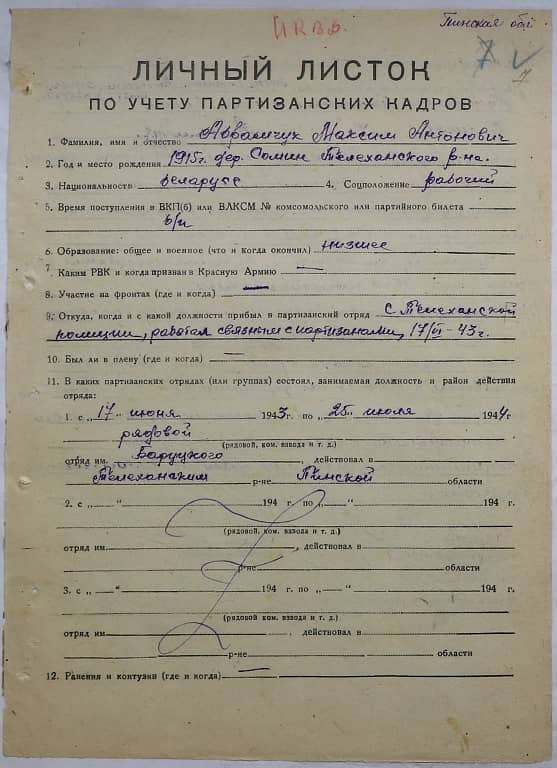 Пинская обл
7
7
ЛИЧНЫЙ ЛИСТОК
ПО УЧЕТУ ПАРТИЗАНСКИХ КАДРОВ
1. Фамилия, имя и отчество Абрамчук Максим Антонович
2. Год и место рождения 1915г. дер. Сомин Телеханского р-на.
3. Национальность беларусс 4. Соцположение рабочий
5. Время поступления в ВКП(б) или ВЛКСМ № комсомольского или партийного билета
б/п
6. Образование: общее и военное (что и когда окончил) низшее
7. Каким РВК и когда призван в Красную Армию —
8. Участие на фронтах (где и когда) —
9. Откуда, когда и с какой должности прибыл в партизанский отряд с Телеханской
полиции, работал связным с партизанами, 17/VI-43г.
10. Был ли в плену (где и когда) —
11. В каких партизанских отрядах (или группах) состоял, занимаемая должность и район действия
отряда:
1. с „17„ июня 1943 г. по „25„ июля 1944 г.
рядовой
(рядовой, ком. взвода и т. д.)
отряд им. Баруцкого, действовал в
Телеханским р-не Пинской области
2. с „—“ 194 г. по „—“ 194 г.
(рядовой, ком. взвода и т. д.)
отряд им. , действовал в
р-не области
3. с „—“ 194 г. по „—“ 194 г.
(рядовой, ком. взвода и т. д.)
отряд им , действовал в
р-не области
12. Ранения и контузии (где и когда) —